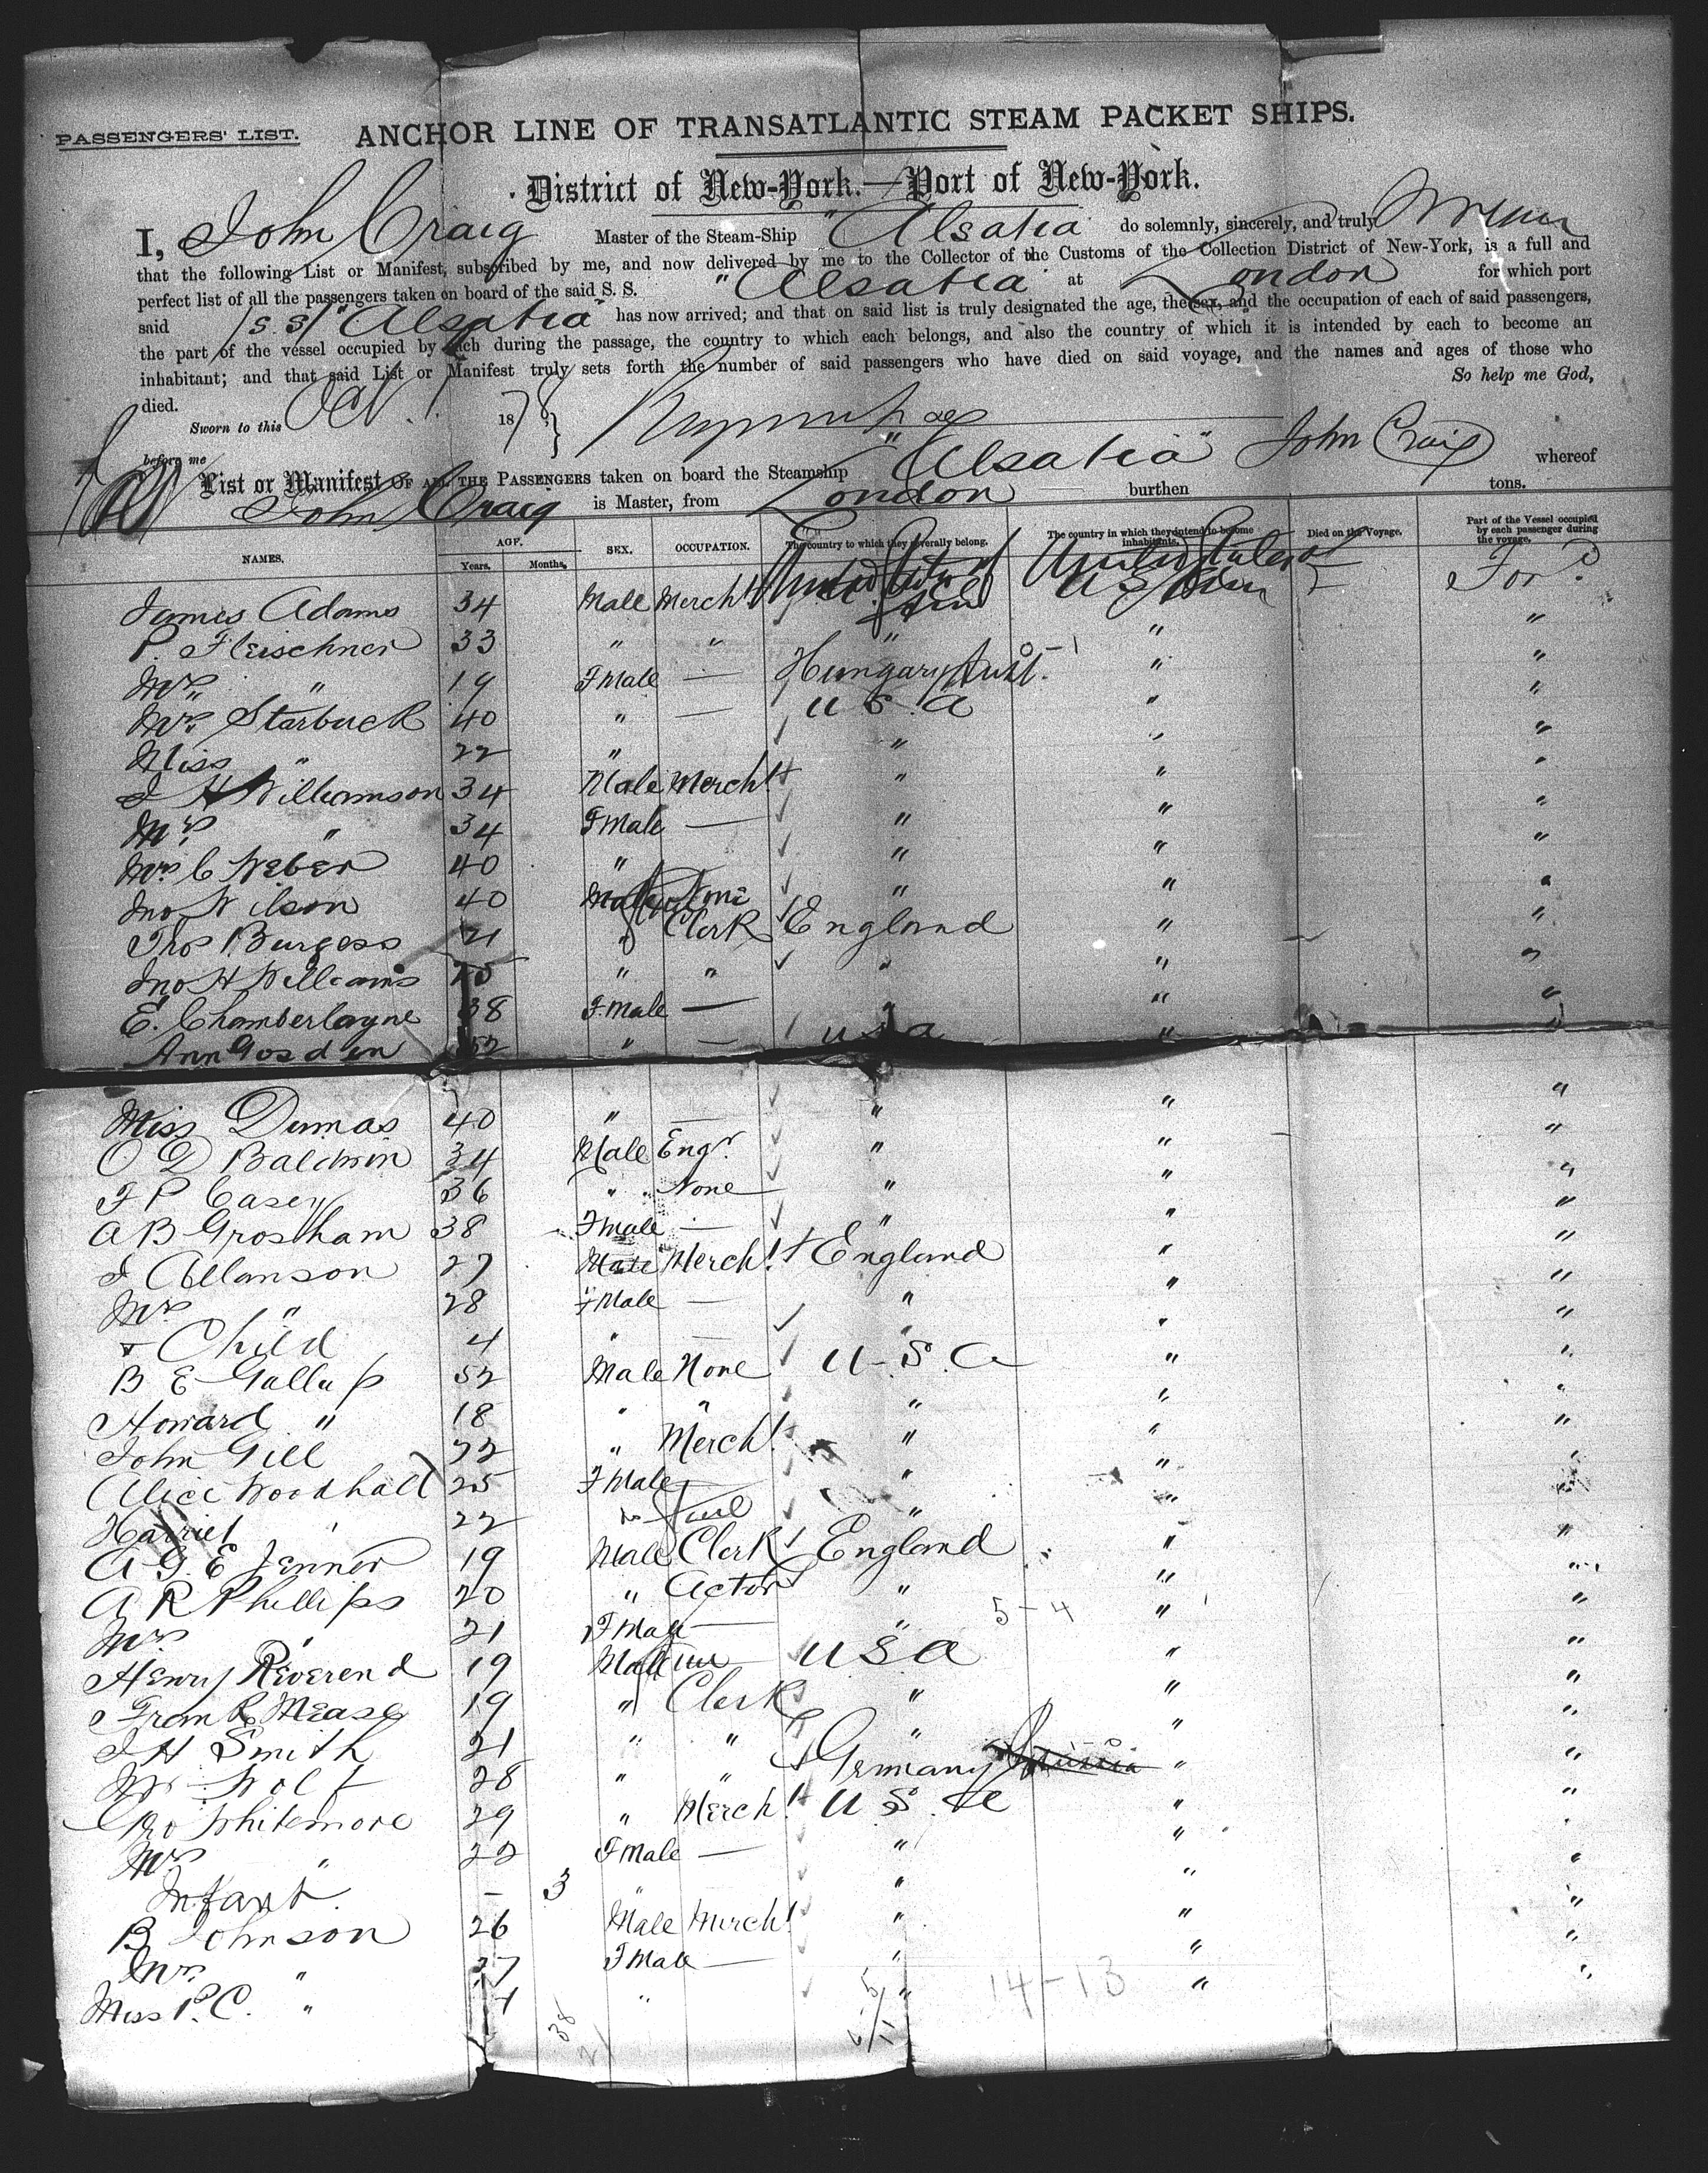 PASSENGERS' LIST.
ANCHOR LINE OF TRANSATLANTIC STEAM PACKET SHIPS.
District of New-York.—Port of New-York.
I, John Craig Master of the Steam-Ship "Alsatia" do solemnly, sincerely, and truly
that the following List or Manifest, subscribed by me, and now delivered by me to the Collector of the Customs of the Collection District of New-York, is a full and
perfect list of all the passengers taken on board of the said S. S. "Alsatia" at London for which port
said "Alsatia" has now arrived; and that on said list is truly designated the age, the sex, and the occupation of each of said passengers,
the part of the vessel occupied by each during the passage, the country to which each belongs, and also the country of which it is intended by each to become an
inhabitant; and that said List or Manifest truly sets forth the number of said passengers who have died on said voyage, and the names and ages of those who
died. So help me God,
Sworn to this Oct 1878
before me
List or Manifest OF ALL THE PASSENGERS taken on board the Steamship "Alsatia" John Craig whereof
John Craig is Master, from London burthen tons.
NAMES. AGE. Years. Months. SEX. OCCUPATION. The country to which they severally belong. The country in which they intend to become inhabitants. Died on the Voyage. Part of the Vessel occupied by each passenger during the voyage.
James Adams 34 Male Mercht
P. Fleischner 33 " " " "
Mrs " 19 FMale — Hungary Aust. " "
Mrs Starbuck 40 " — U S. A " "
Miss " 22 " " " "
J H Williamson 34 Male Mercht " " "
Mrs " 34 FMale — " " "
Mrs C Weber 40 " " " "
Jno Wilson 40 Male " " "
Thos Burgess 21 " Clerk England " "
Jno H Williams 25 " " " " "
E. Chamberlayne 38 FMale — " " "
Ann Gosden 52 " — U S A " "
Miss Dumas 40 " — " " "
O D Baldwin 34 Male Engr. " " "
F P Casey 36 " None " " "
A B Grosham 38 FMale — " " "
J Allanson 27 Male Mercht England " "
Mrs " 28 FMale — " " "
+ Child 4 " — " " "
B E Gallup 52 Male None U-S. A " "
Howard " 18 " " " " "
John Gill 22 " Mercht " " "
Alice Woodhall 25 FMale " " "
Harriet " 22 " " " "
A G. E Jenner 19 Male Clerk England " "
A R Phillips 20 " Actor " " "
Mrs " 21 FMale — " 5-4 " "
Henry Reverend 19 Male U S A " "
Frank Mease 19 " Clerk " " "
J H Smith 21 " " " " "
Mr Wolf 28 " " Germany " "
Geo Whitemore 29 " Mercht U S. A " "
Mrs " 22 FMale — " " "
Infant. – 3 " " " "
B Johnson 26 Male Mercht " " "
Mrs. " 27 FMale — " " "
Miss P. C. " " " 14-13 " "